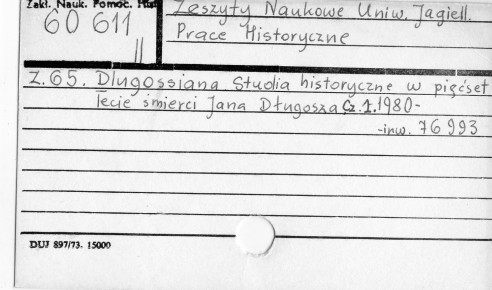 Zakł. Nauk. Pomoc. Hist
60 611
II
Zeszyty Naukowe Uniw. Jagiell.
Prace Historyczne
Z. 65. Dlugossiana Studia historyczne w pięćset
lecie śmierci Jana Długosza Cz. 1. 1980-
-inw. 76 993
DUJ 897/73. 15000